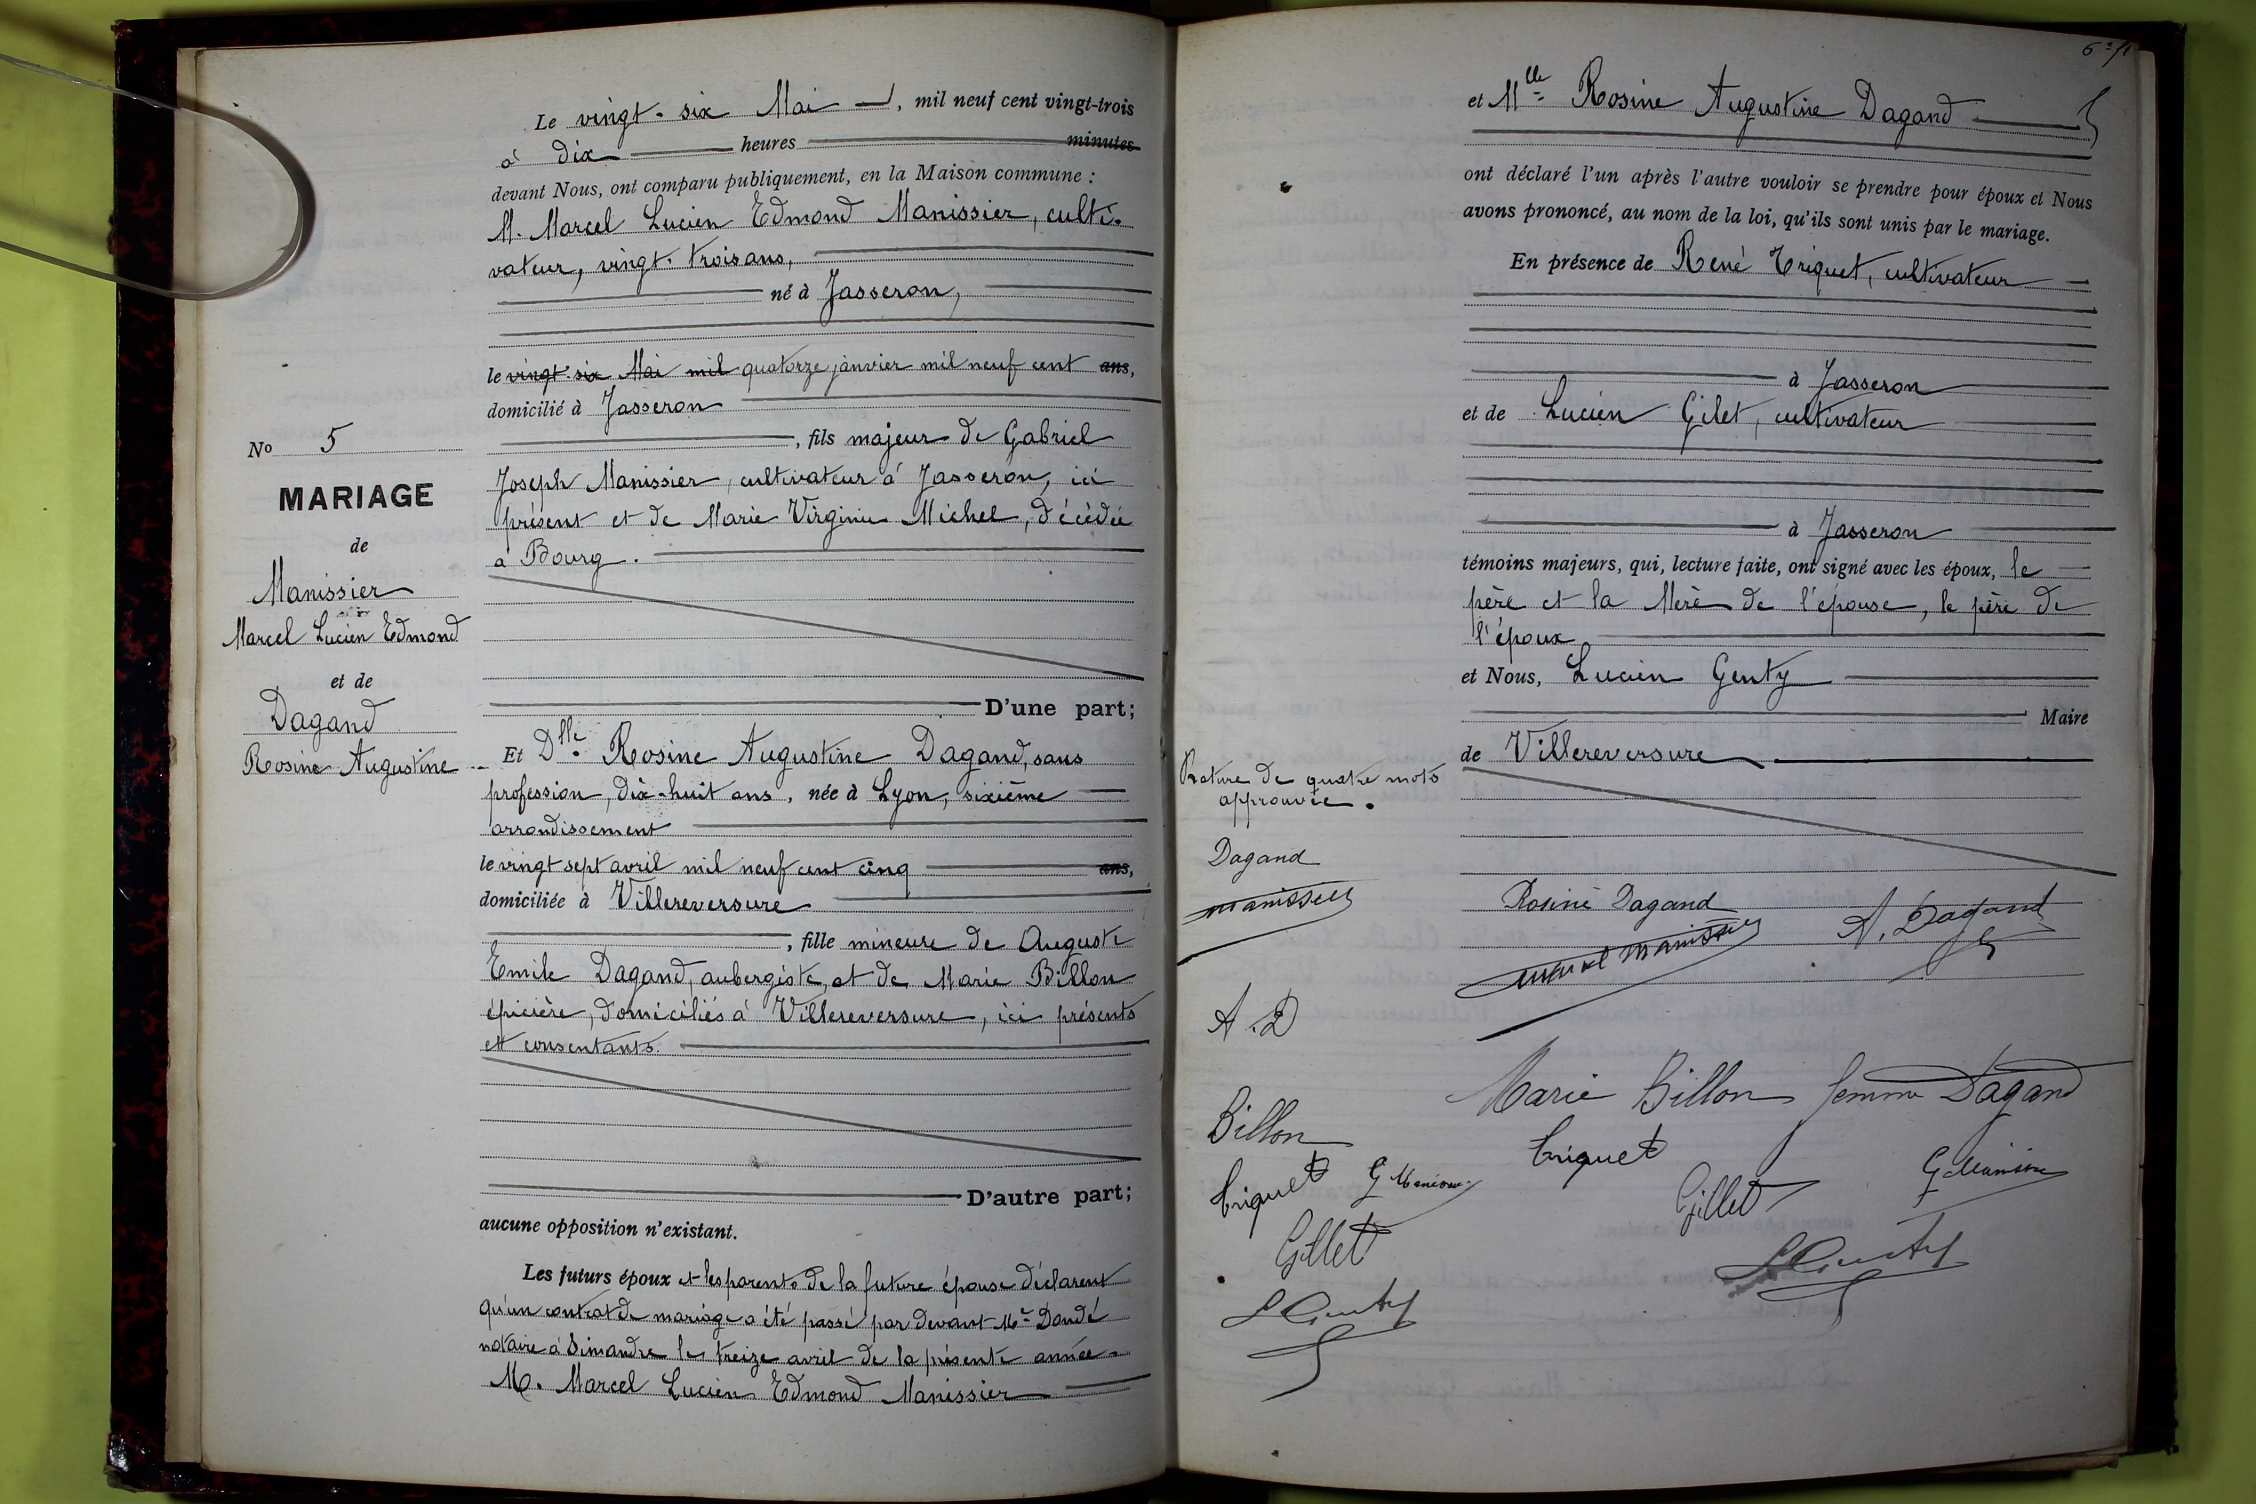 Le vingt-six Mai, mil neuf cent vingt-trois
à dix heures minutes
devant Nous, ont comparu publiquement, en la Maison commune :
M. Marcel Lucien Edmond Manissier, culti-
vateur, vingt-trois ans,
né à Jasseron,
le vingt-six Mai mil quatorze janvier mil neuf cent ans,
domicilié à Jasseron
, fils majeur de Gabriel
Joseph Manissier, cultivateur à Jasseron, ici
présent et de Marie Virginie Michel, décédée
à Bourg.
D'une part;
Et Dlle Rosine Augustine Dagand, sans
profession, dix-huit ans, née à Lyon, sixième
arrondissement
le vingt sept avril mil neuf cent cinq ans,
domiciliée à Villereversure
, fille mineure de Auguste
Emile Dagand, aubergiste, et de Marie Billon
épicière, domiciliés à Villereversure, ici présents
et consentants.
D'autre part;
aucune opposition n'existant.
Les futurs époux et les parents de la future épouse déclarent
qu'un contrat de mariage a été passé par devant Me Dandé
notaire à Simandre le treize avril de la présente année.
M. Marcel Lucien Edmond Manissier
No 5
MARIAGE
de
Manissier
Marcel Lucien Edmond
et de
Dagand
Rosine Augustine
et Mlle Rosine Augustine Dagand
ont déclaré l'un après l'autre vouloir se prendre pour époux et Nous
avons prononcé, au nom de la loi, qu'ils sont unis par le mariage.
En présence de René Triquet, cultivateur
à Jasseron
et de Lucien Gilet, cultivateur
à Jasseron
témoins majeurs, qui, lecture faite, ont signé avec les époux, le
père et la Mère de l'épouse, le père de
l'époux
et Nous, Lucien Genty
Maire
de Villereversure
Rature de quatre mots
approuvée.
Dagand
Manissier
A. D
Billon
Triquet G Manissier
Gillet
L Genty
Rosine Dagand
Marcel Manissier A. Dagand
Marie Billon femme Dagand
Triquet
Gillet G Manissier
L Genty